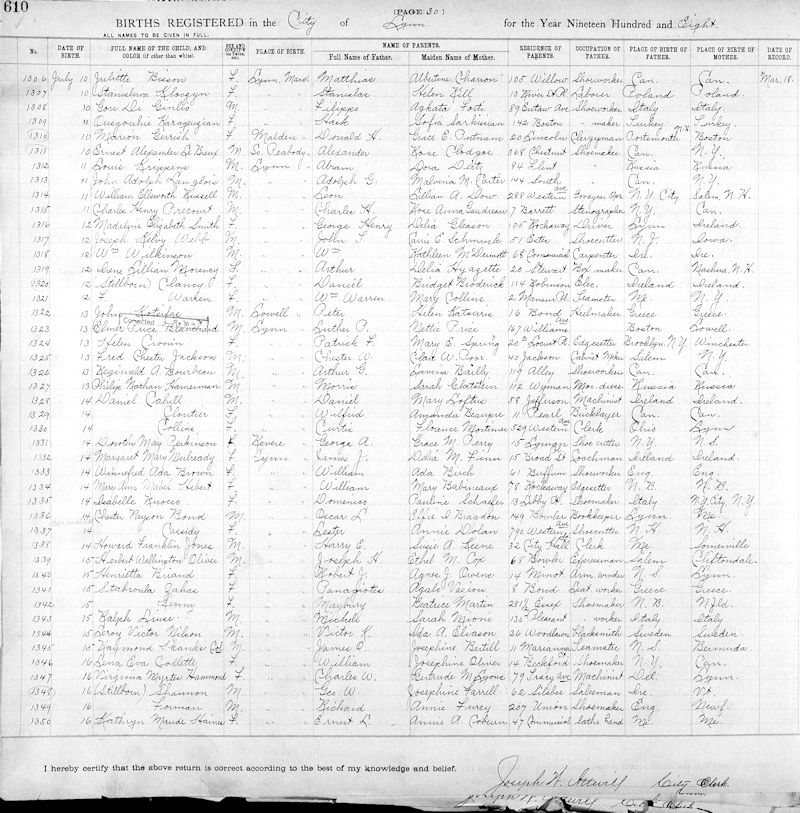 610
[PAGE 30]
BIRTHS REGISTERED in the City of Lynn. for the Year Nineteen Hundred and Eight.
ALL NAMES TO BE GIVEN IN FULL.
No. DATE OF BIRTH. FULL NAME OF THE CHILD, AND COLOR (if other than white). PLACE OF BIRTH. NAME OF PARENTS. Full Name of Father. Maiden Name of Mother. RESIDENCE OF PARENTS. OCCUPATION OF FATHER. PLACE OF BIRTH OF FATHER. PLACE OF BIRTH OF MOTHER. DATE OF RECORD.
1306 July 10 Juliette Bisson F. Lynn, Mass. Matthias Albertine Charron 105 Willow Shoeworker Can. Can. Mar. 18.
1307 10 F. Stanislar Helen Laborer Poland Poland.
1308 10 M. Filippo Agkata Foti 89 Shoeworker Italy Italy
1309 10 F. Sofia Sarkisian 142 Boston " maker Turkey Turkey
1310 10 Marion Gerrish F. Malden Donald H. Grace E. Putnam 20 Lincoln Clergyman Portsmouth N.H. Boston
1311 10 Ernest Alexander Le Breux M. So. Peabody Alexander Rose 568 Chestnut Shoemaker Can. N.Y.
1312 11 Louis M. Lynn Abram Dora 84 Flint Russia Russia
1313 11 John Adolph Langlois M. " " Adolph G. Malvina M. Carter 144 South " Can. N.Y.
1314 11 William Ellsworth Russell M. " " Leon Lillian A. Dow 288 Western Ave N.Y. City Salem, N.H.
1315 11 Charles Henry Precourt M. " " Charles H. Rose Anna Gaudreau 7 Barrett Stenographer N.Y. Can.
1316 12 Madelyne Elizabeth Smith F. " " George Henry Delia Gleason 104 Rockaway Driver Lynn Ireland.
1317 12 Joseph Kelvy M. " " John F. Carrie E. Schmuck 51 Estes Shoecutter N.J. Iowa.
1318 12 Wm Wilkinson M. " " Wm Kathleen McDermott 68 Commercial Carpenter Ire. Ire.
1319 12 Irene Lillian Mouncy F. " " Arthur Delia Hyagette 20 Stewart Box maker Can. Nashua, N.H.
1320 12 (Stillborn) Clancy F. " " Daniel Bridget Broderick 114 Robinson Elec. Ireland Ireland
1321 12 F. Warren F. " " Wm Warren Mary Collins 2 Teamster Me. N.Y.
1322 13 John M. Lowell Peter Helen 16 Bond Heelmaker Greece Greece.
Corrected
1323 13 Elmer Price Blanchard M. Lynn Luther P. Nettie Price 167 Williams Ave Boston Lowell
1324 13 Helen Cronin F. " " Patrick F. Mary E. Spring 20 Locust Pl. Edgesetter Brooklyn, N.Y. Winchester
1325 13 Fred Chester Jackson M. " " Chester W. Clara W. Poor 40 Jackson Cabinet Maker Salem N.Y.
1326 13 Reginald A. Bourbeau M. " " Arthur G. Lovina Bailly 119 Alley Shoeworker Can. Can.
1327 13 Philip Nathan Hamerman M. " " Morris Sarah Glatstein 112 Wyman Mor. dress. Russia Russia
1328 14 Daniel Cahill M. " " Daniel Mary Loftus 58 Jefferson Machinist Ireland Ireland.
1329 14 Cloutier F. " " Wilfrid Amanda Beaupre 11 Pearl Bricklayer Can. Can.
1330 14 Collins F. " " Curtis Florence Mortimer 529 Western Ave Clerk Ohio Lynn
1331 14 Dorothy May Perkinson F. Revere George A. Grace M. Perry 15 Lyman Shoe cutter N.Y. N.S.
1332 14 Margaret Mary Mulready F. Lynn James J. Delia M. Finn 15 Broad St. Coachman Ireland Ireland.
1333 14 Winnifred Ada Brown F. " " William Ada Birch 61 Buffum Shoeworker Eng. Eng.
1334 14 Mary Ann Mabel Hebert F. " " William Mary Babineaux 78 Rockaway Edgesetter N.B. N.B.
1335 14 Isabella Ruocco F. " " Domenico Pauline Schaefer 13 Libby Shoemaker Italy N.Y. City, N.Y.
1336 14 Chester Payson Bond M. " " Oscar L. Effie D. Bragdon 149 Bowler Bookkeeper Lynn Me.
1337 14 Cassidy F. " " Lester Annie Dolan 790 Western Ave Shoecutter N.H. N.H.
1338 14 Howard Franklin Jones M. " " Harry E. Susie A. Leene 32 City Hall Clerk Me. Somerville
1339 15 Herbert Wellington Oliver M. " " Joseph H. Ethel M. Cox 68 Bowler Expressman Salem Cliftondale.
1340 15 Henrietta Briand F. " " Robert J. Agnes J. 14 Minot Arm. winder N.S. Lynn.
1341 15 Stavroula F. " " Panagiotes 8 Bond Leat. worker Greece Greece.
1342 15 Kenny F. " " Maybury Beatrice Martin 281½ Essex Shoemaker N.B. Nfld.
1343 15 Ralph M. " " Micheli Sarah 135 Pleasant " worker Italy Italy
1344 15 Leroy Victor Nilson M. " " Victor K. Ida A. Eliason 36 Woodlawn Blacksmith Sweden Sweden.
1345 15 Raymond Skanks (Col.) M. " " James O. Josephine Betill 11 Marianna Teamster N.S. Bermuda.
1346 16 Lena Eva Collette F. " " William Josephine Oliver 14 Beckford Shoemaker N.Y. Can.
1347 16 Virginia Myrtis Hammond F. " " Charles W. Gertrude M. Lyons 79 Tracy Ave Machinist Del. Lynn.
1348 16 (Stillborn) Shannon M. " " Geo. W. Josephine Farrell 62 Silsbee Salesman Ire. Vt.
1349 16 Forman M. " " Richard Annie Furey 207 Union Shoemaker Eng. Newf.
1350 16 Kathryn Maude Haines F. " " Ernest L. Annie A. Coburn 47 Commercial Lathe hand Me. Me.
I hereby certify that the above return is correct according to the best of my knowledge and belief.
Joseph W. Attwill City Clerk.
Joseph W. Attwill City Clerk